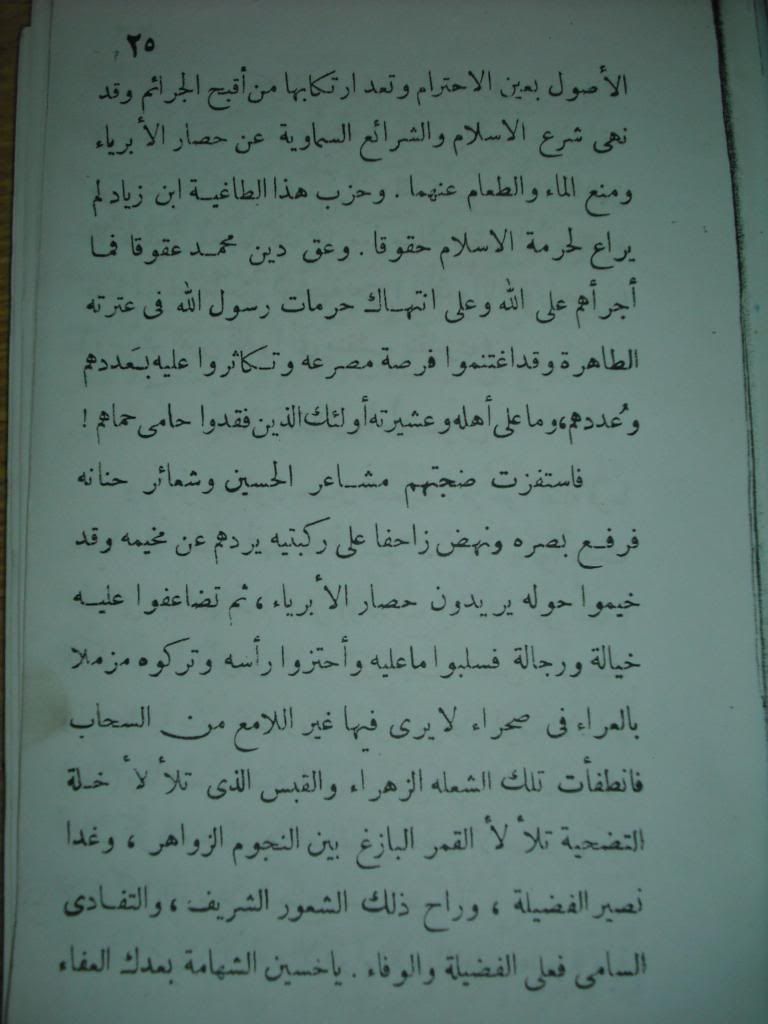 ٢٥
الأصول بعين الاحترام وتعد ارتكابها من أقبح الجرائم وقد
نهى شرع الاسلام والشرائع السماوية عن حصار الأبرياء
ومنع الماء والطعام عنهما . وحزب هذا الطاغية ابن زياد لم
يراع لحرمة الاسلام حقوقا . وعق دين محمد عقوقا فما
أجرأهم على الله وعلى انتهاك حرمات رسول الله فى عترته
الطاهرة وقد اغتنموا فرصة مصرعه وتكاثروا عليه بعَددهم
وعُددهم، وما على أهله وعشيرته أولئك الذين فقدوا حامى حماهم !
فاستفزت ضجتهم مشاعر الحسين وشعائر حنانه
فرفع بصره ونهض زاحفا على ركبتيه يردهم عن مخيمه وقد
خيموا حوله يريدون حصار الأبرياء ، ثم تضاعفوا عليه
خيالة ورجالة فسلبوا ماعليه وأحتزوا رأسه وتركوه مزملا
بالعراء فى صحراء لا يرى فيها غير اللامع من السحاب
فانطفأت تلك الشعله الزهراء والقبس الذى تلألأ خلة
التضحية تلألأ القمر البازغ بين النجوم الزواهر ، وغدا
نصير الفضيلة ، وراح ذلك الشعور الشريف ، والتفادى
السامى فعلى الفضيلة والوفاء . ياحسين الشهامة بعدك العفاء